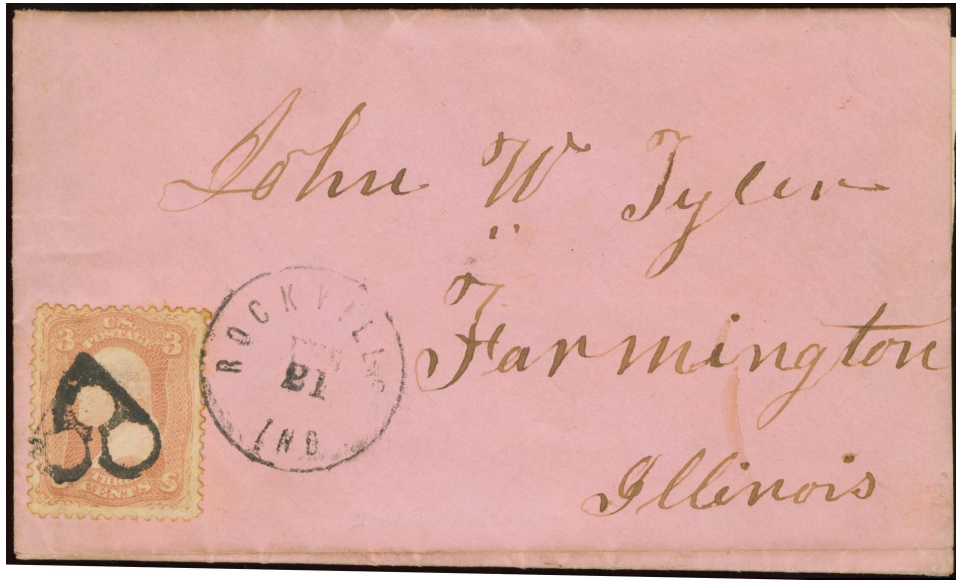 John W Tyler
"
Farmington
Illinois
ROCKVILLE
21
IND
3 U.S. 3
POSTAGE
CENTS